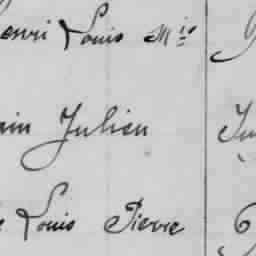 enri Louis Mie
in Julien Ju
Louis Pierre